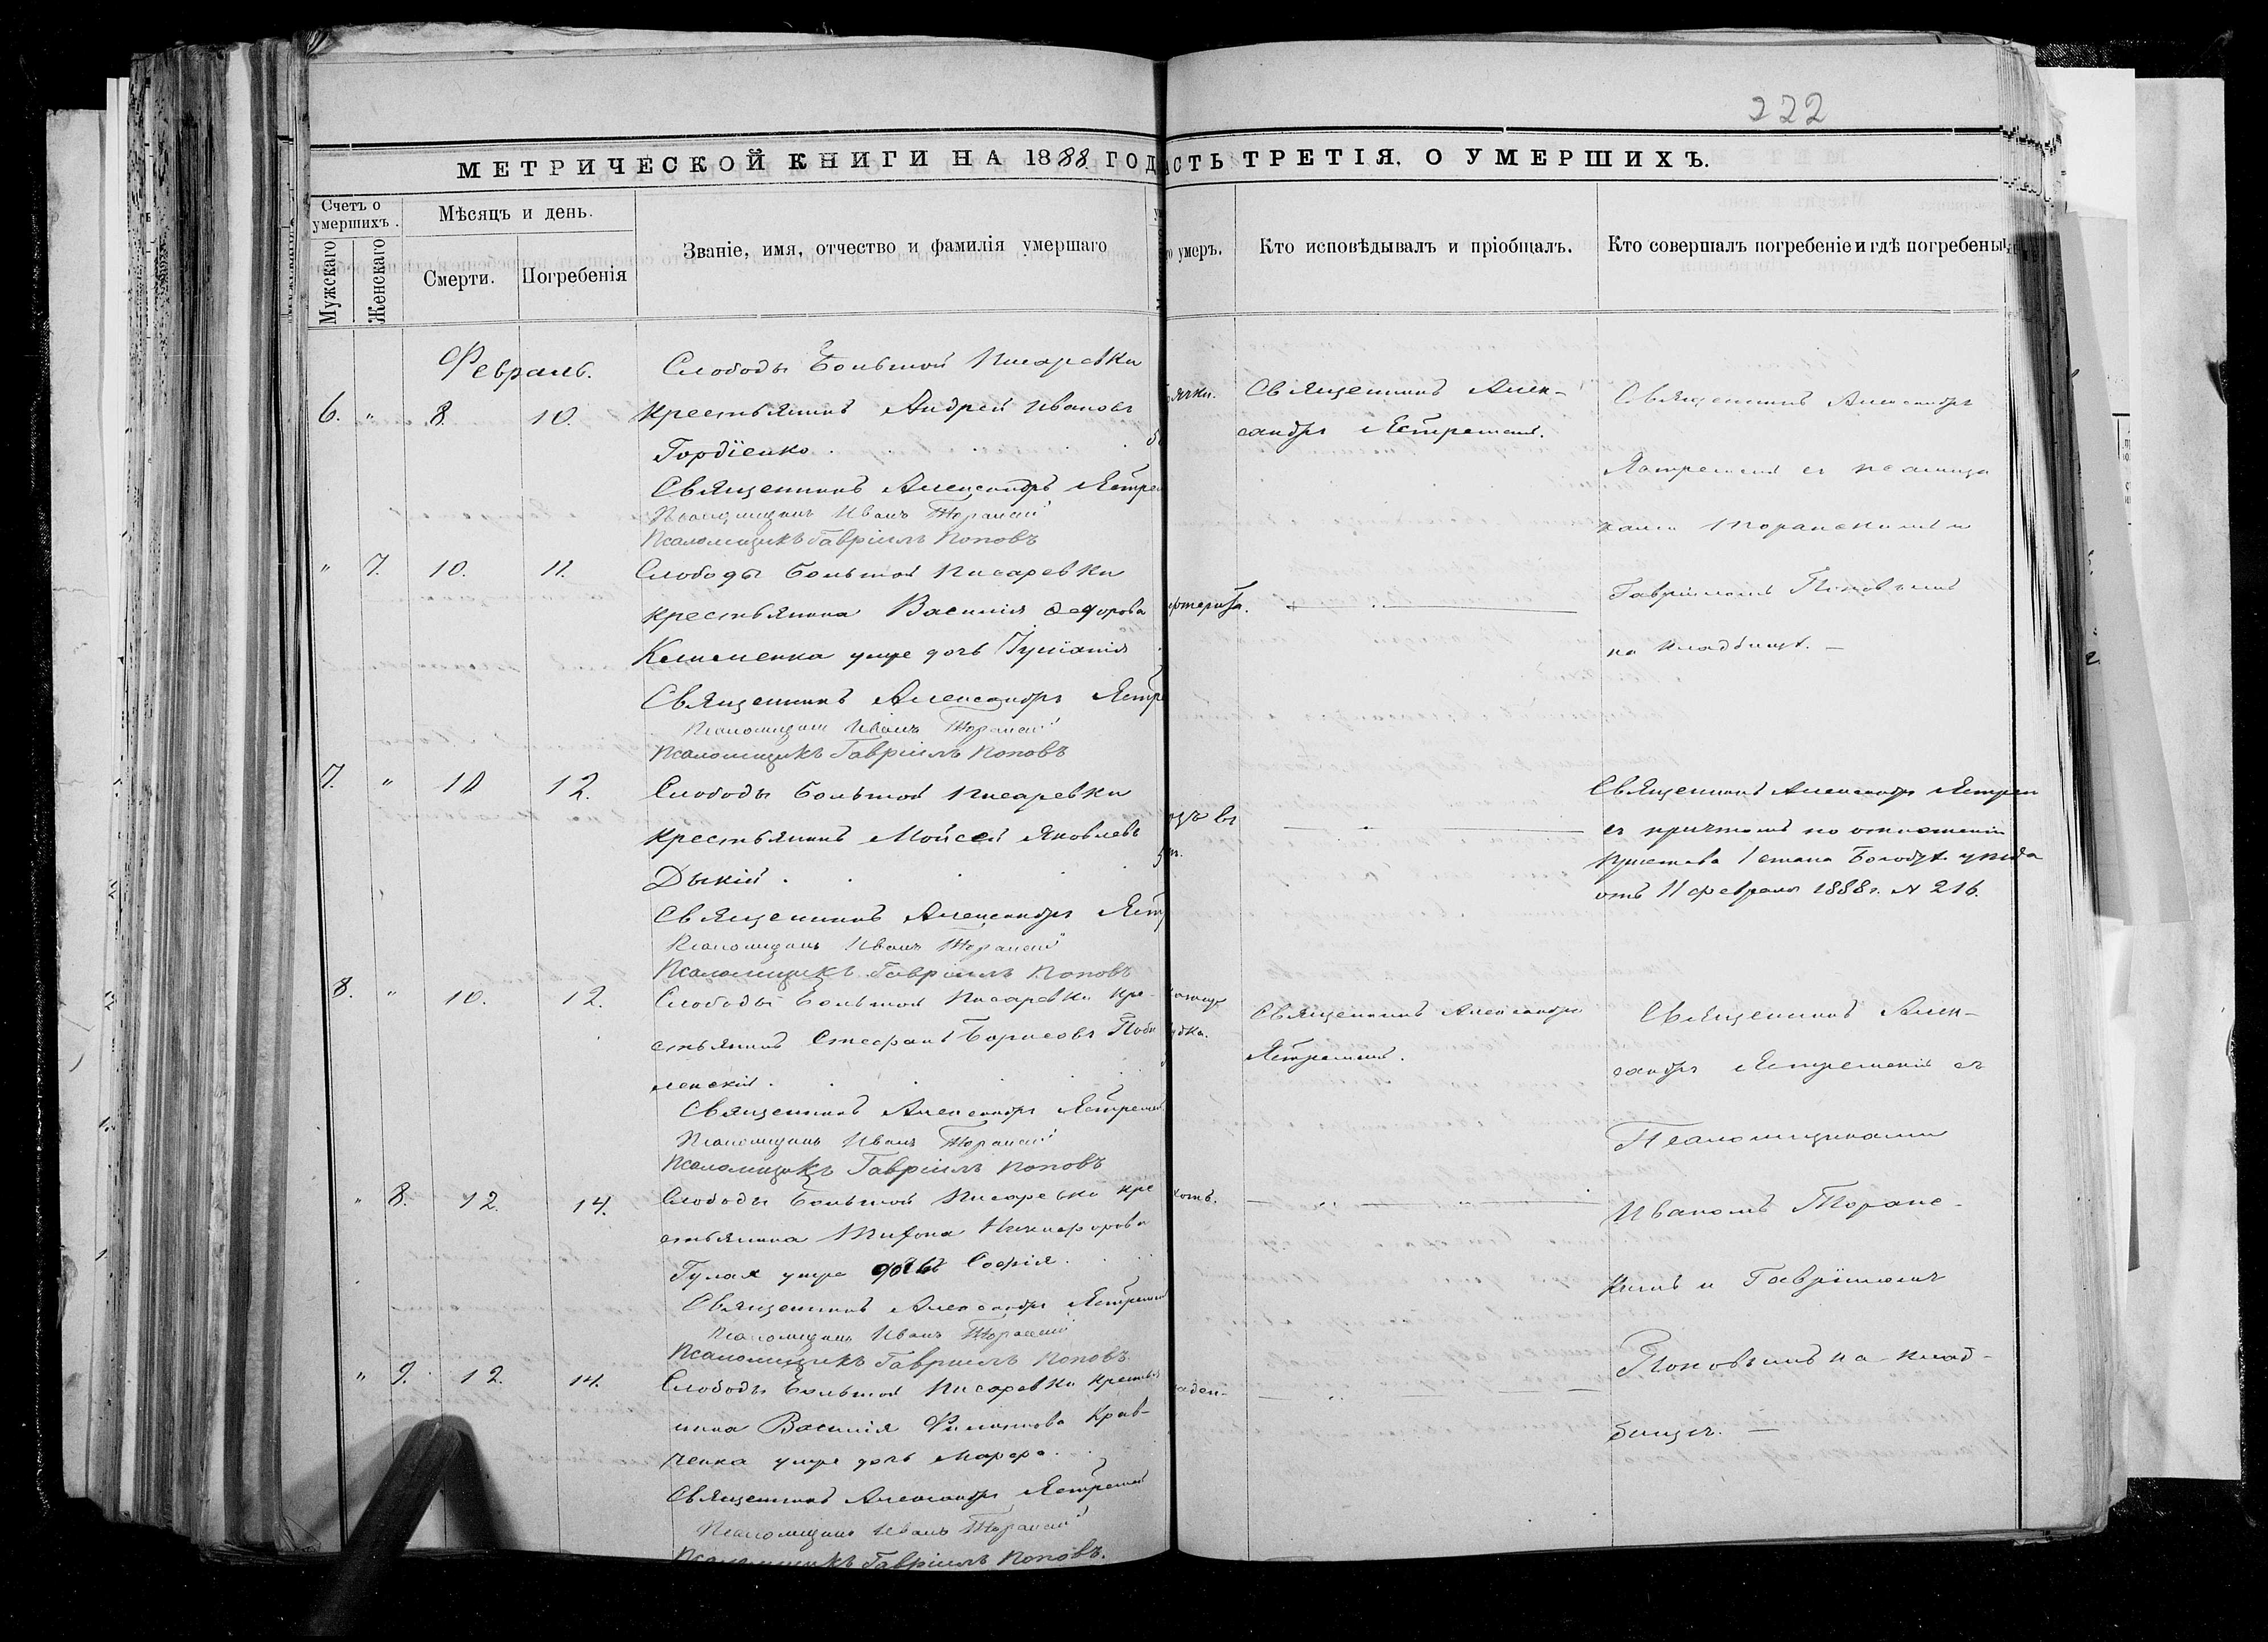 222
МЕТРИЧЕСКОЙ КНИГИ НА 1888 ГОД
АСТЬ ТРЕТІЯ, О УМЕРШИХЪ.
Счетъ о умершихъ.
Мужскаго
Женскаго
Мѣсяцъ и день.
Смерти.
Погребенія
Званіе, имя, отчество и фамилія умершаго
о умеръ.
Кто исповѣдывалъ и пріобщалъ.
Кто совершалъ погребеніе и гдѣ погребены
Февраль.
Слободы Большой Писаревки
6. " 8. 10. крестьянинъ Андрей Ивановъ
Гордіенко
Священникъ Александръ Ястре
Псаломщикъ Иванъ Торанскій
Псаломщикъ Гавріилъ Поповъ
Священникъ Алек-
сандръ Ястремскій.
Священникъ Александръ
Ястремскій съ псаломщи
ками Торанскимъ и
Гавріиломъ Поповымъ
на кладбищѣ. —
" 7. 10. 11. Слободы Большой Писаревки
крестьянина Василія Федорова
умре дочь
Священникъ Александръ Ястре
Псаломщикъ Иванъ Торанскій
Псаломщикъ Гавріилъ Поповъ
7. " 10 12. Слободы Большой Писаревки
крестьянинъ Мойсей Яковлевъ
Дикій
Священникъ Александръ Яст
Псаломщикъ Иванъ Торанскій
Псаломщикъ Гавріилъ Поповъ
Священникъ Александръ Ястрем
съ причтомъ по отношенію
Пристава 1 стана Богодух. уѣзда
отъ 11 февраля 1888 г. № 216.
8. " 10. 12. Слободы Большой Писаревки кре-
стьянинъ Стефанъ Борисовъ
ленскій
Священникъ Александръ Ястремскій
Псаломщикъ Иванъ Торанскій
Псаломщикъ Гавріилъ Поповъ
Священникъ Александръ
Ястремскій.
Священникъ Алек-
сандръ Ястремскій съ
Псаломщиками
Иваномъ Торанс-
кимъ и Гавріиломъ
Поповымъ на клад-
бищѣ. —
" 8. 12. 14. Слободы Большой Писаревки кре
стьянина Никифорова
умре дочь Софія
Священникъ Александръ Ястремскій
Псаломщикъ Иванъ Торанскій
Псаломщикъ Гавріилъ Поповъ
" 9. 12. 14. Слободы Большой Писаревки кресть
янина Василія Филиппова Крав-
ченка умре дочь Марфа
Священникъ Александръ Ястремскій
Псаломщикъ Иванъ Торанскій
Псаломщикъ Гавріилъ Поповъ.